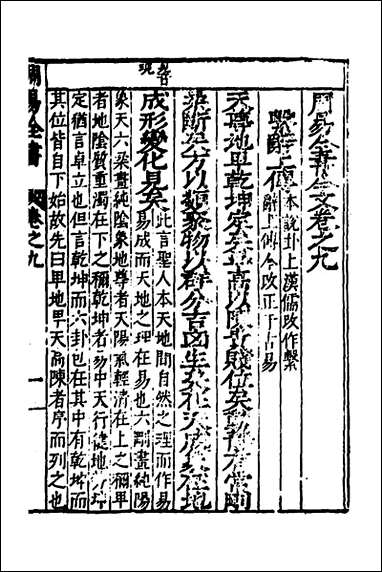 周易全書今文卷之九
繫辭上傳
本說卦上漢儒改作繫
辭上傳今改正于古易
天尊地卑乾坤定矣卑高以陳貴賤位矣動靜有常剛
柔斷矣方以類聚物以群分吉凶生矣在天成象在地
見音
現
成形變化見矣
此言聖人本天地間自然之理而作易
易成而天地之理在易也六剛畫純陽
象天六柔畫純陰象地尊者天陽氣輕清在上之稱卑
者地陰質重濁在下之稱乾坤者易中天行健地勢坤
定猶言卓立也但言乾坤而六卦包在其中有乾坤而
其位皆自下始故先曰卑地卑天高陳者序而列之也
周易全書 卷之九 一